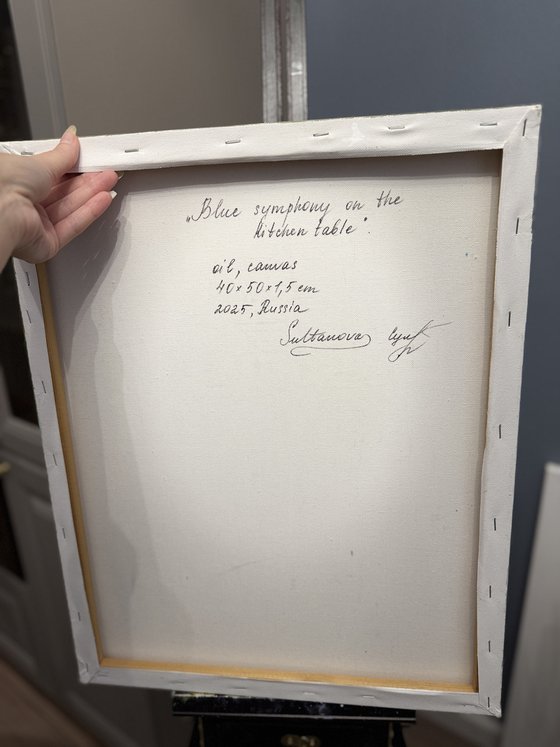 „Blue symphony on the
kitchen table".
oil, canvas
40×50×1,5 cm
2025, Russia
Sultanova